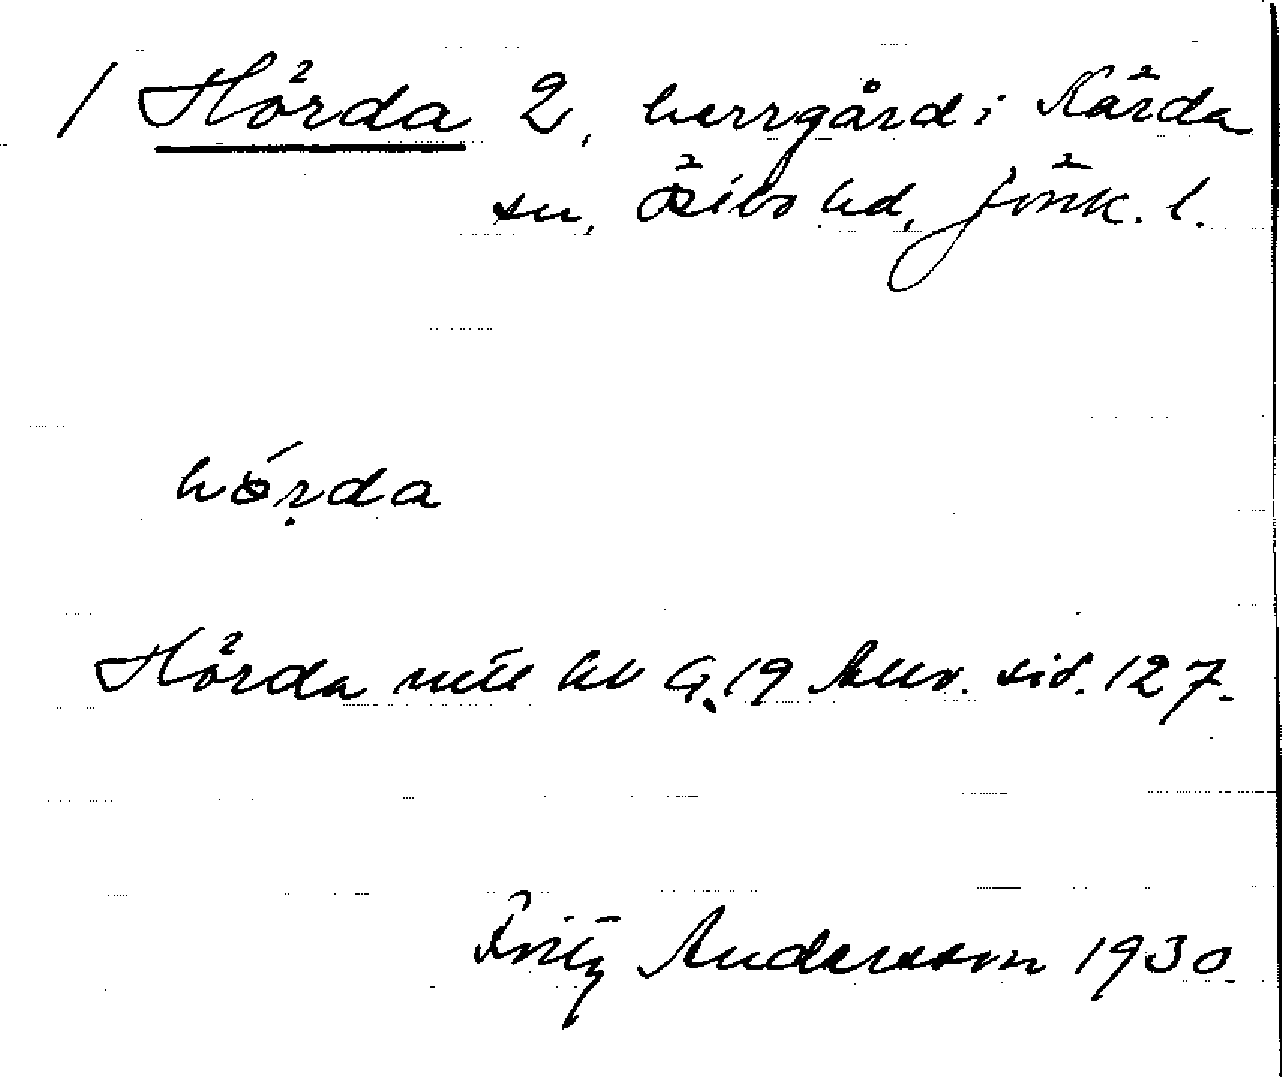 / Hörda 2, herrgård i Kärda
sn, Östbo hd, Jönk. l.
hó̤rda
Hörda mtl hv G. 19 Allm. sid. 127.
Fritz Andersson 1930